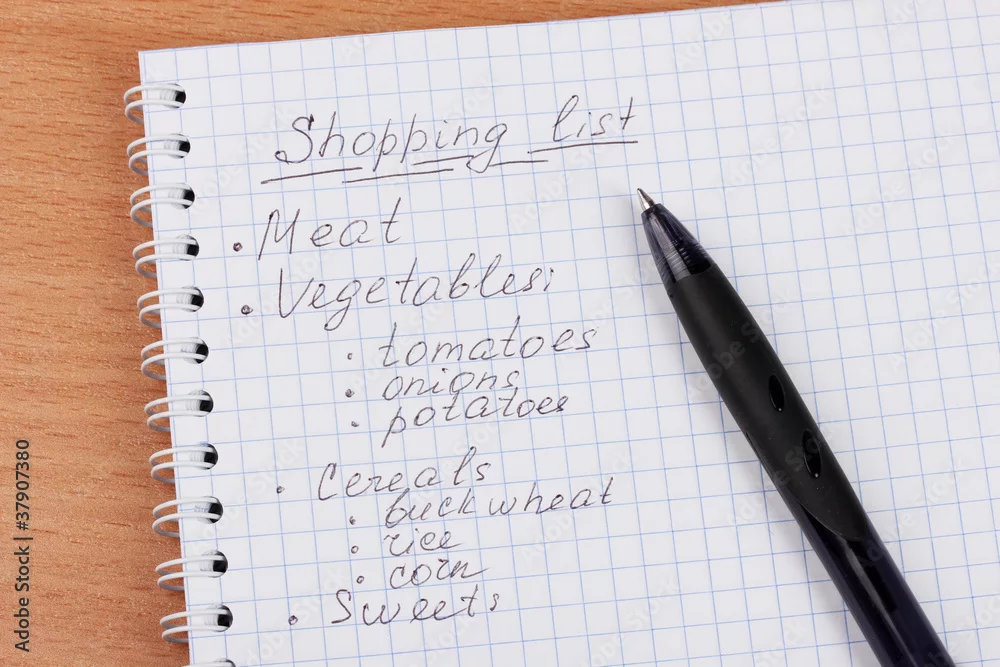 Shopping list
• Meat
• Vegetables:
• tomatoes
• onions
• potatoes
• Cereals
• buckwheat
• rice
• corn
• Sweets
Adobe Stock | #37907380